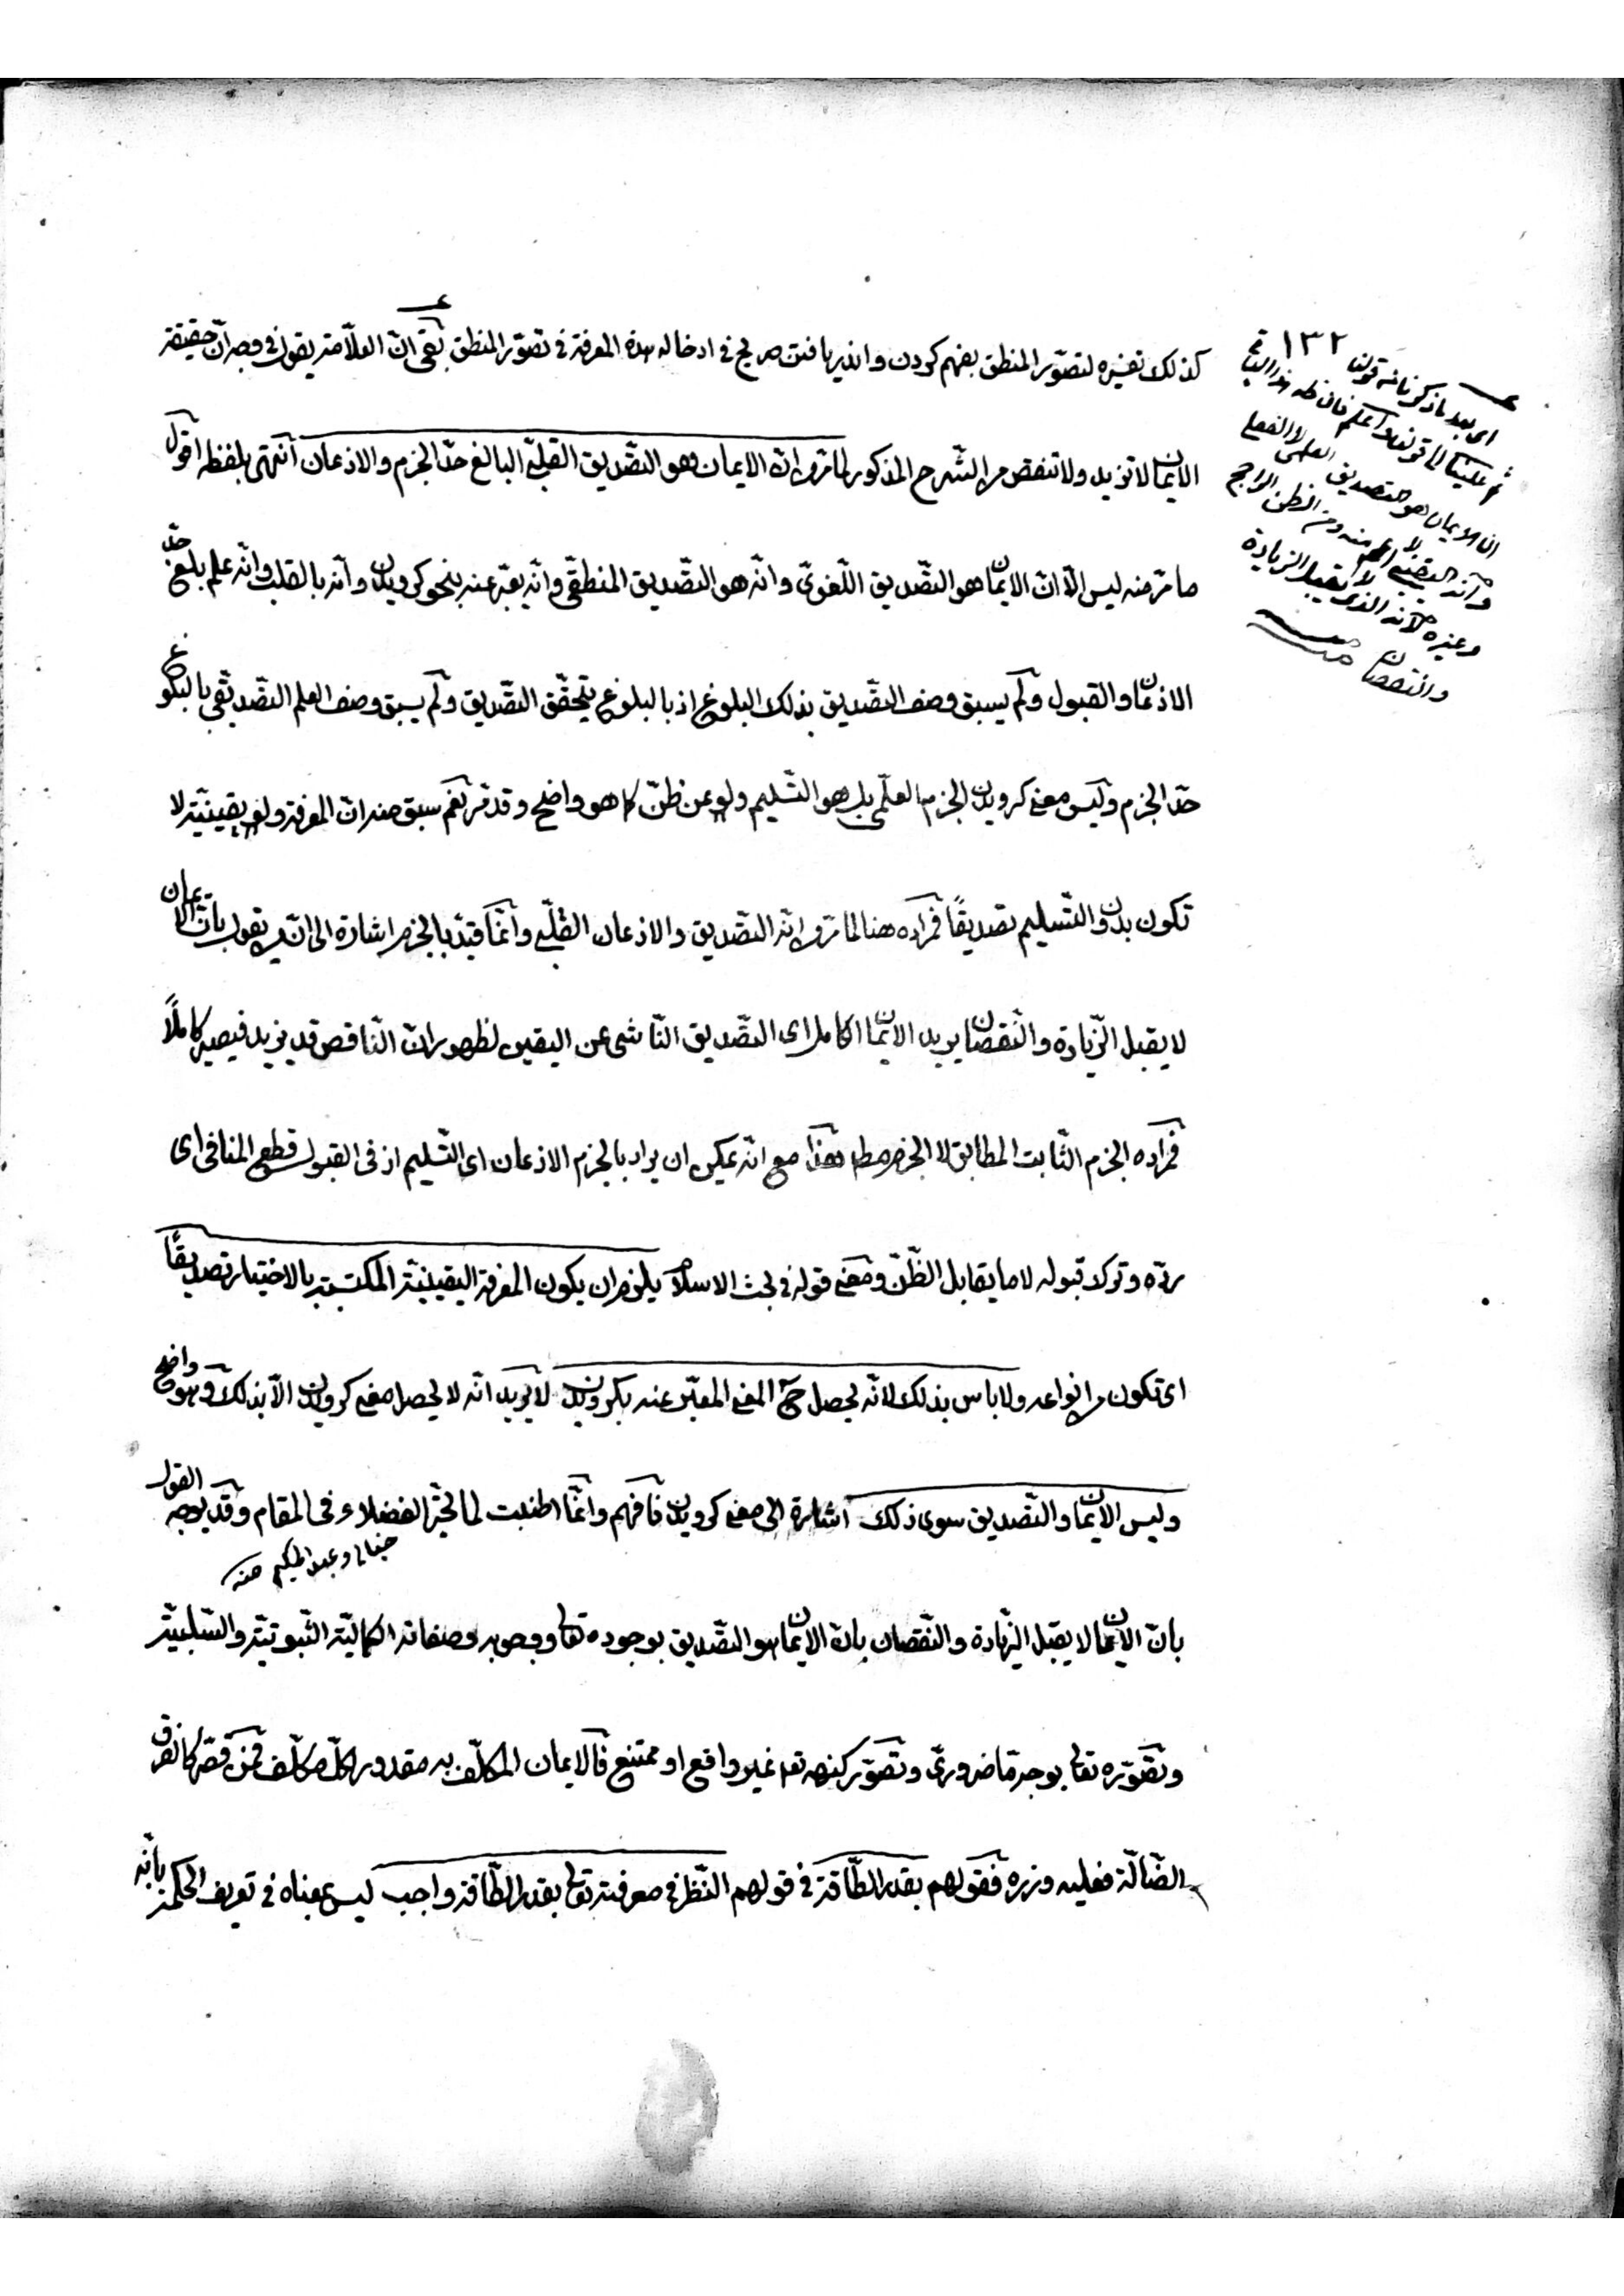 كذلك تفسيره لتصوّر المنطق بفهم كردن واندر يافتن صريح في ادخاله هذه المعرفة في تصوّر المنطق بقي انّ العلّامة يقول في وجه انّ حقيقة
الايمان لا تزيد ولا تنقص من الشرح المذكور لما مرّ من انّ الايمان هو التصديق القلبي البالغ حدّ الجزم والاذعان انتهى بلفظه اقول
ما مرّ منه ليس الّا انّ الايمان هو التصديق اللّغويّ وانّه هو التصديق المنطقي وانّه يعبّر عنه بنحو كرويدن وانّه بالقلب وانّه علم بلغ حدّ
الاذعان والقبول ولم يسبق وصف التصديق بذلك البلوغ اذ بالبلوغ يتحقّق التصديق ولم يسبق وصف العلم التصديقي بالبلوغ
حدّ الجزم وليس معنى كرويدن الجزم العلميّ بل هو التسليم ولو عن ظنّ كما هو واضح وقد مرّ نعم سبق منه انّ المعرفة ولو يقينيّة لا
تكون بدون التسليم تصديقًا فمراده هنا لما مرّ من انّه التصديق والاذعان القلبي وانّما قيّد بالجزم اشارة الى انّ من يقول بانّ الايمان
لا يقبل الزيادة والنقصان يريد الايمان الكامل اي التصديق النّاشي عن اليقين لظهور انّ النّاقص قد يزيد فيصير كاملًا
فمراده الجزم الثّابت المطابق لا الجزم مطلقا هذا مع انّه يمكن ان يراد بالجزم الاذعان اي التسليم اذ في القبول قطع المنافي اي
ردّه وترك قبوله لا ما يقابل الظنّ ومعنى قوله في بحث الاسلام يلزم ان يكون المعرفة اليقينيّة المكتسبة بالاختيار تصديقًا
اي تكون من انواعه ولا باس بذلك لانّه يحصل ح المعنى المعبّر عنه بكرويدن لا يريد انّه لا يحصل معنى كرويدن الّا بذلك وهو واضح
وليس الايمان والتصديق سوى ذلك اشارة الى معنى كرويدن فافهم وانّما اطنبت لما تحيّر الفضلاء في المقام وقد يوجه القول
خيالي وعبد الحكيم منه
بانّ الايمان لا يقبل الزيادة والنقصان بانّ الايمان هو التصديق بوجوده تعالى ووجوبه وصفاته الكماليّة الثبوتيّة والسّلبيّة
وتصوّره تعالى بوجه ما ضروريّ وتصوّر كنهه تعالى غير واقع او ممتنع فالايمان المكلّف به مقدور لكلّ مكلّف فمن قصّر كالفرق
الضّالّة فعليه وزره فقولهم بقدر الطّاقة في قولهم النّظر في معرفته تعالى بقدر الطّاقة واجب ليس بمعناه في تعريف الحكمة بانّه
١٣٢
اي بعد ما ذكرنا من قولنا
ثم عليك الى قولنا واعلم فان ظهر هذا البيان
ان الايمان هو التصديق العلمي لا الفعلي
وانه اليقيني لا اعم منه ومن الظن الراجح
وغيره لانه الذي لا يقبل الزيادة
والنقصان منه